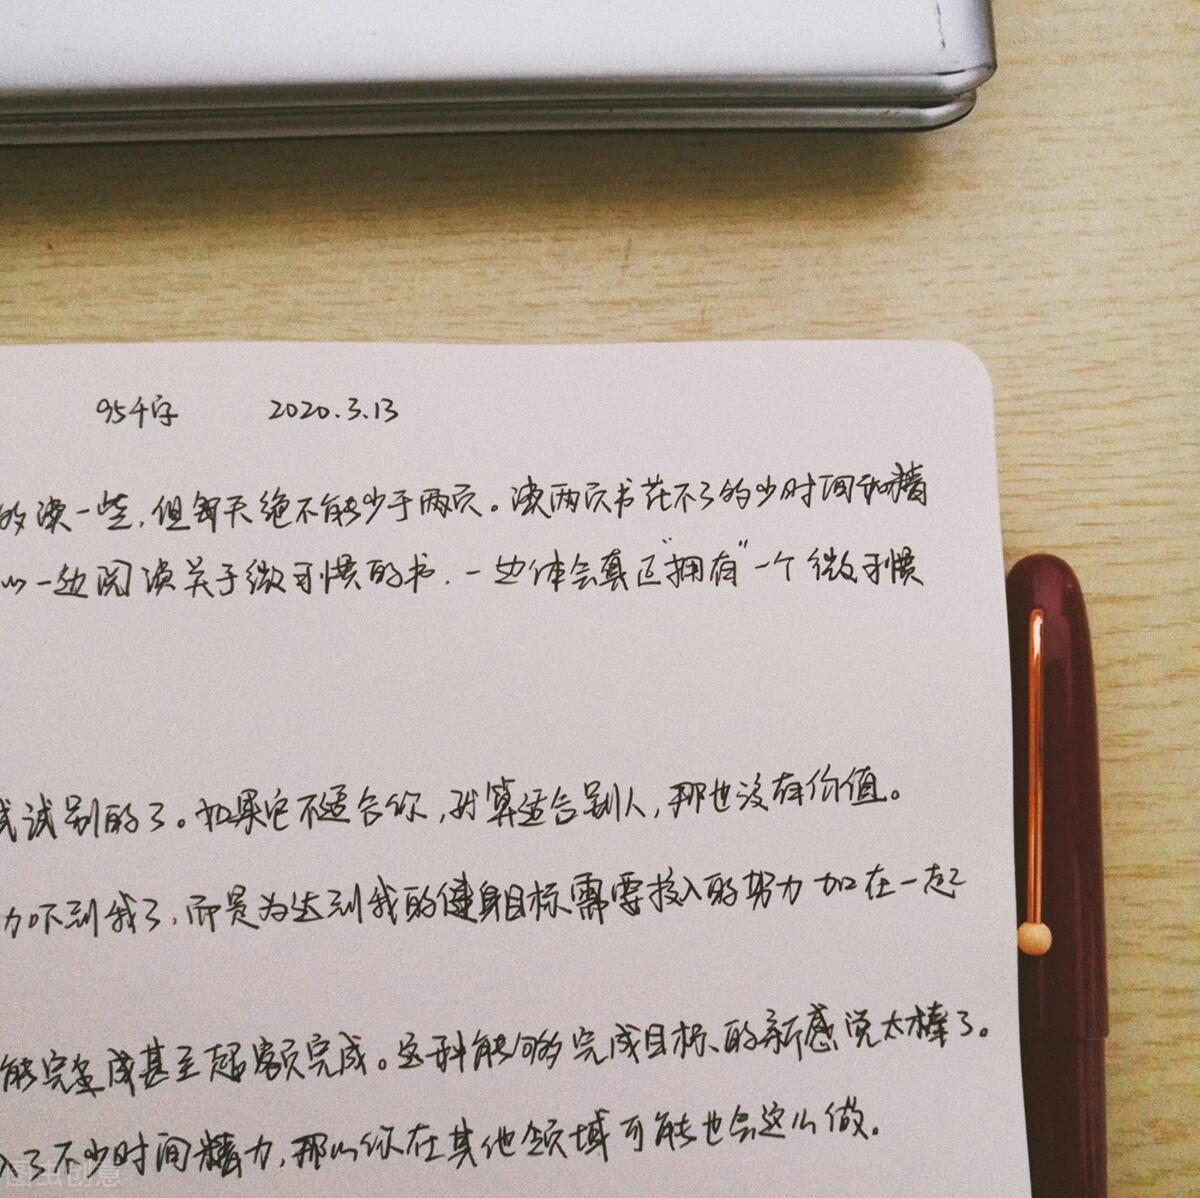 95千字 2020.3.13
的读一些,但每天绝不能少于两页。读两页书花不了多少时间和精
以一边阅读关于微习惯的书,一边体会真正"拥有"一个微习惯
试试别的了。如果它不适合你,就算适合别人,那也没有价值。
力吓到我了,而是为达到我的健身目标需要投入的努力加在一起
能完全成甚至超额完成。这种能够完成目标的新感觉太棒了。
入了不少时间精力,那么你在其他领域可能也会这么做。
图虫创意